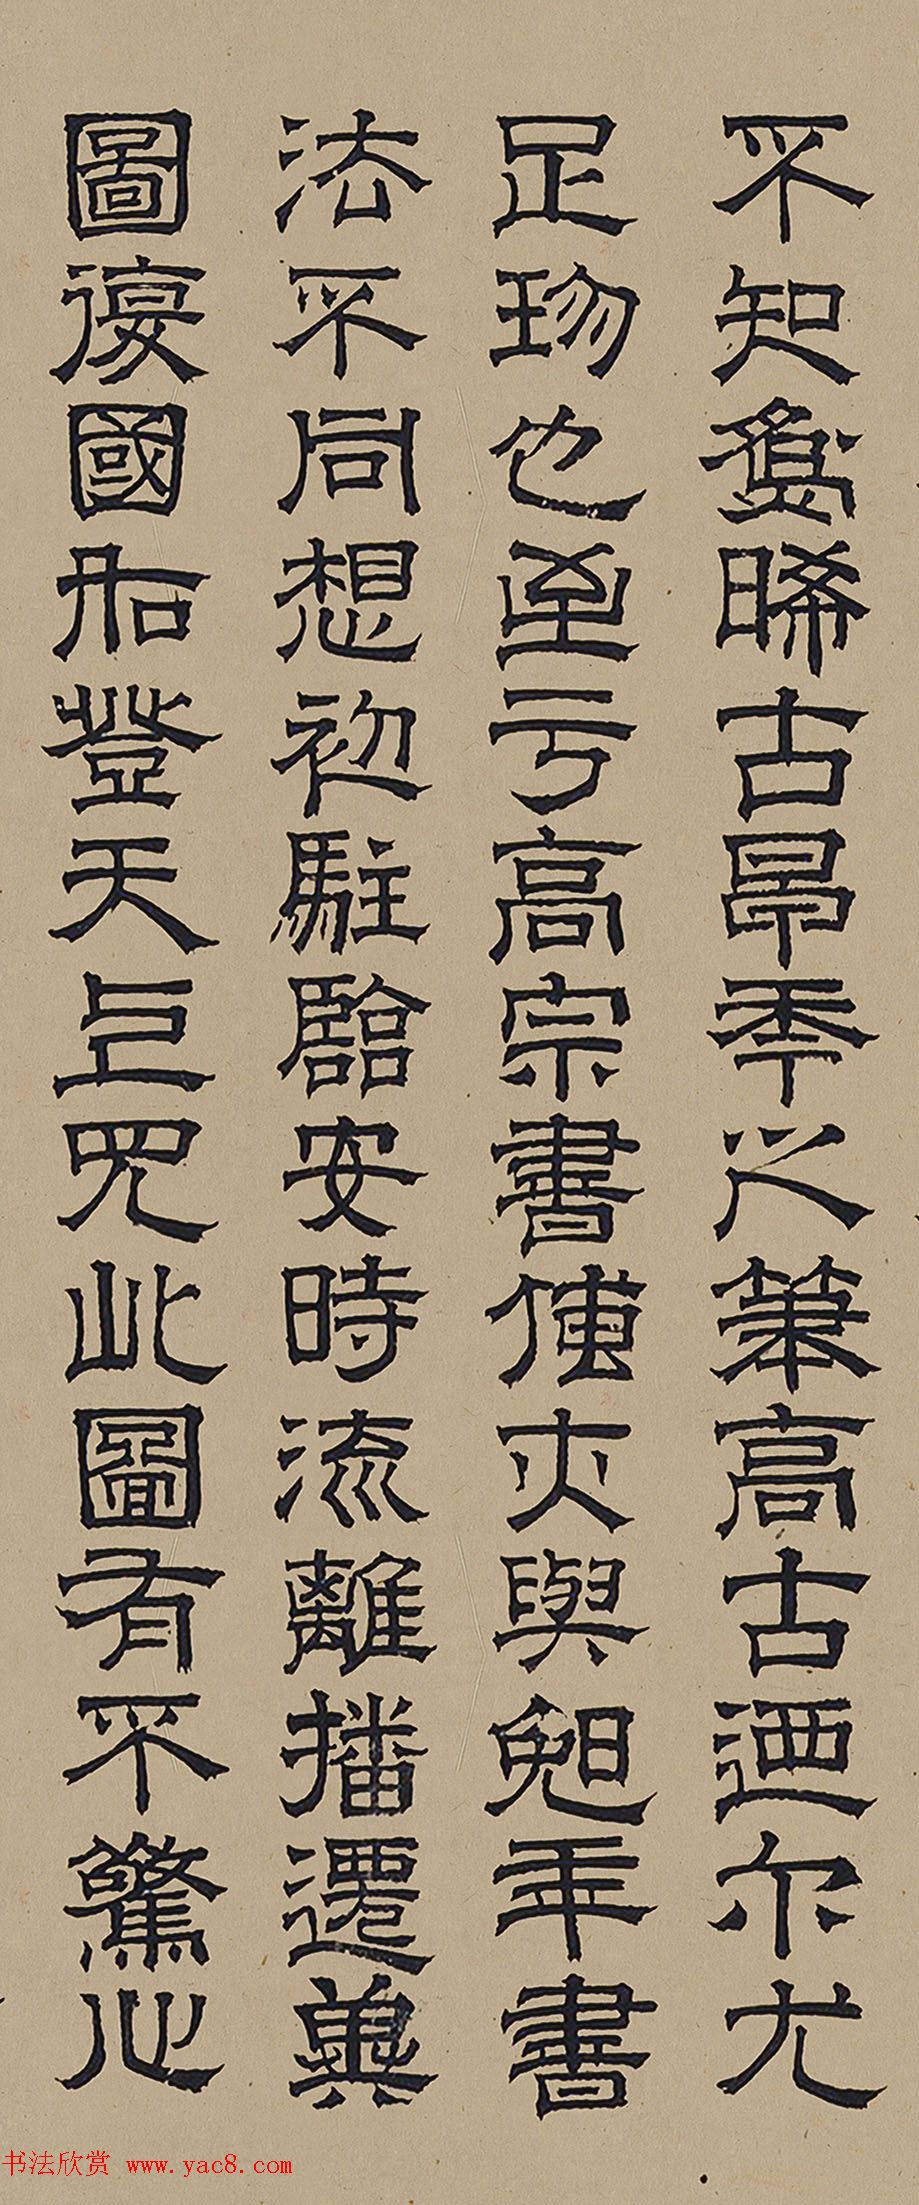 不知為晞古早年之筆高古迺尔尤
足珍也至亏高宗書傳亦與晚年書
法不同想初駐臨安時流離播遷冀
圖復國如登天此圖有不驚心
书法欣赏 www.yac8.com